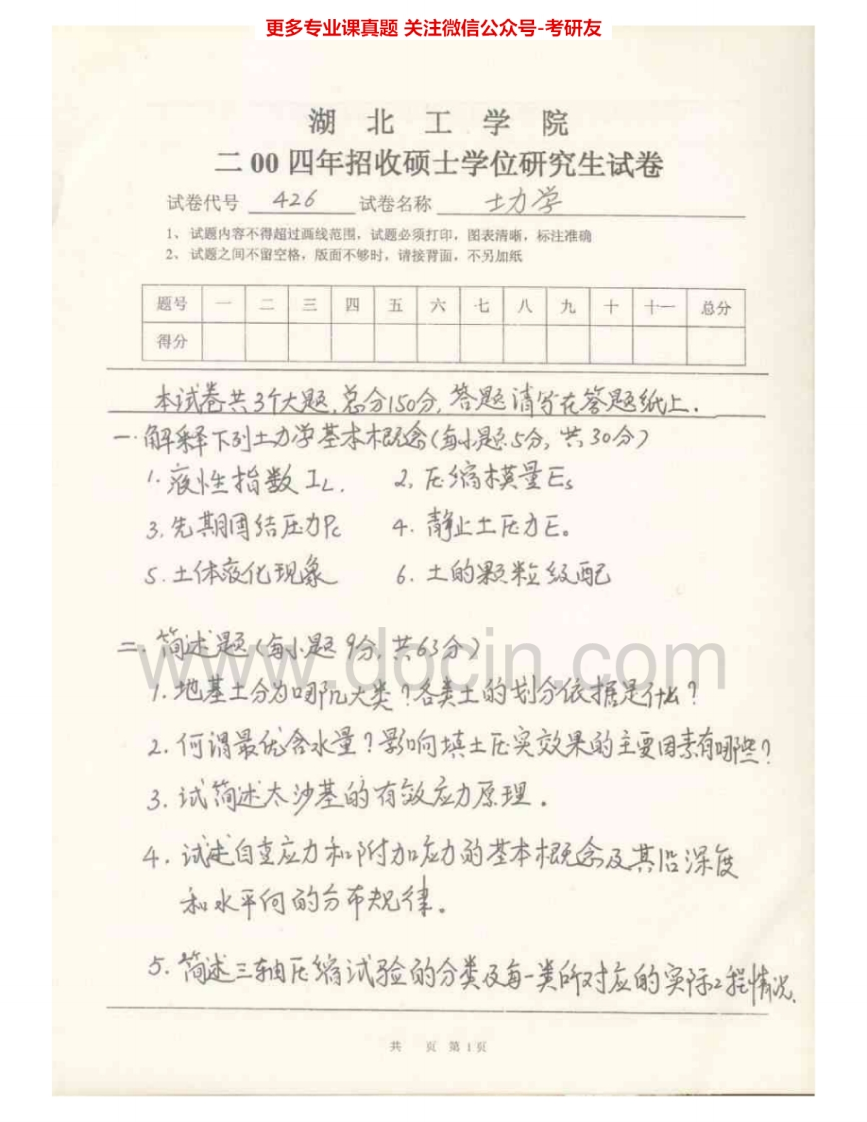 更多专业课真题 关注微信公众号-考研友
湖 北 工 学 院
二00四年招收硕士学位研究生试卷
试卷代号 426 试卷名称 土力学
1、试题内容不得超过画线范围，试题必须打印，图表清晰，标注准确
2、试题之间不留空格，版面不够时，请接背面，不另加纸
题号 一 二 三 四 五 六 七 八 九 十 十一 总分
得分
本试卷共3个大题，总分150分，答题请写在答题纸上.
一.解释下列土力学基本概念(每小题5分,共30分)
1.液性指数IL. 2,压缩模量Es
3.先期固结压力Pc 4.静止土压力E。
5.土体液化现象 6.土的颗粒级配
二.简述题(每小题9分,共63分)
www.docin.com
1.地基土分为哪几大类?各类土的划分依据是什么?
2.何谓最优含水量?影响填土压实效果的主要因素有哪些?
3.试简述太沙基的有效应力原理.
4.试述自重应力和附加应力的基本概念及其沿深度
和水平向的分布规律。
5.简述三轴压缩试验的分类及每一类所对应的实际工程情况.
共 页 第1页